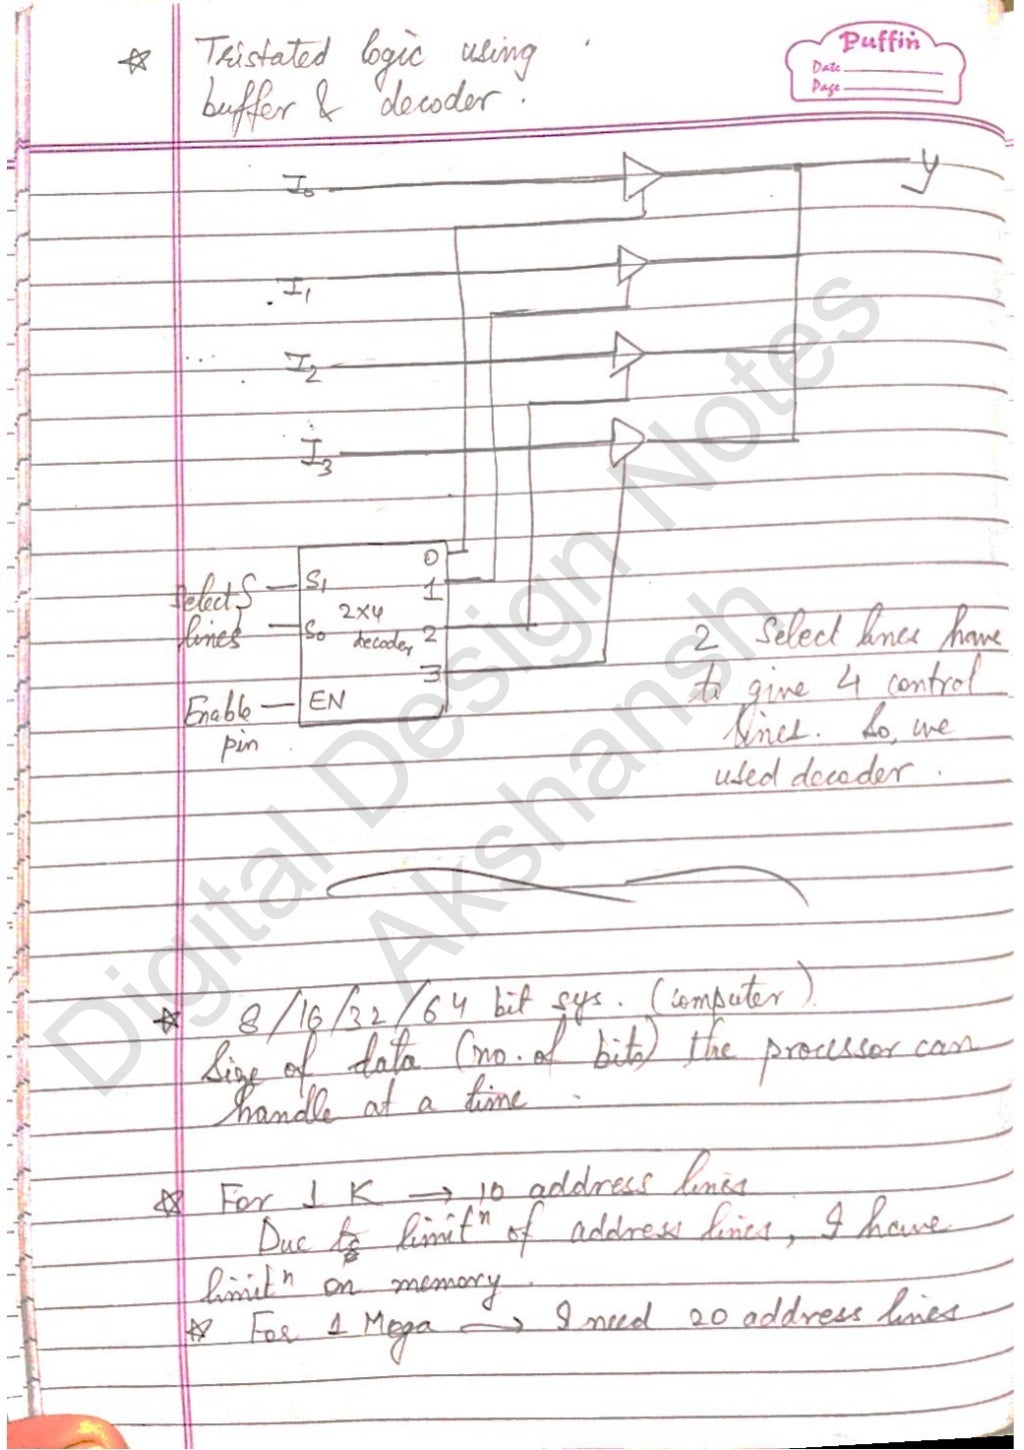 ☆ Tristated logic using
buffer & decoder.
Puffin
Date
Page
I₀
y
I₁
I₂
I₃
Select
lines
S₁
S₀
2x4
decoder
0
1
2
3
Enable
pin
EN
2 Select lines have
to give 4 control
lines. So, we
used decoder.
Digital Design Notes
Akshansh
☆ 8/16/32/64 bit sys. (computer).
Size of data (no. of bits) the processor can
handle at a time.
☆ For 1 K → 10 address lines
Due to limitⁿ of address lines, I have
limitⁿ on memory.
☆ For 1 Mega → I need 20 address lines